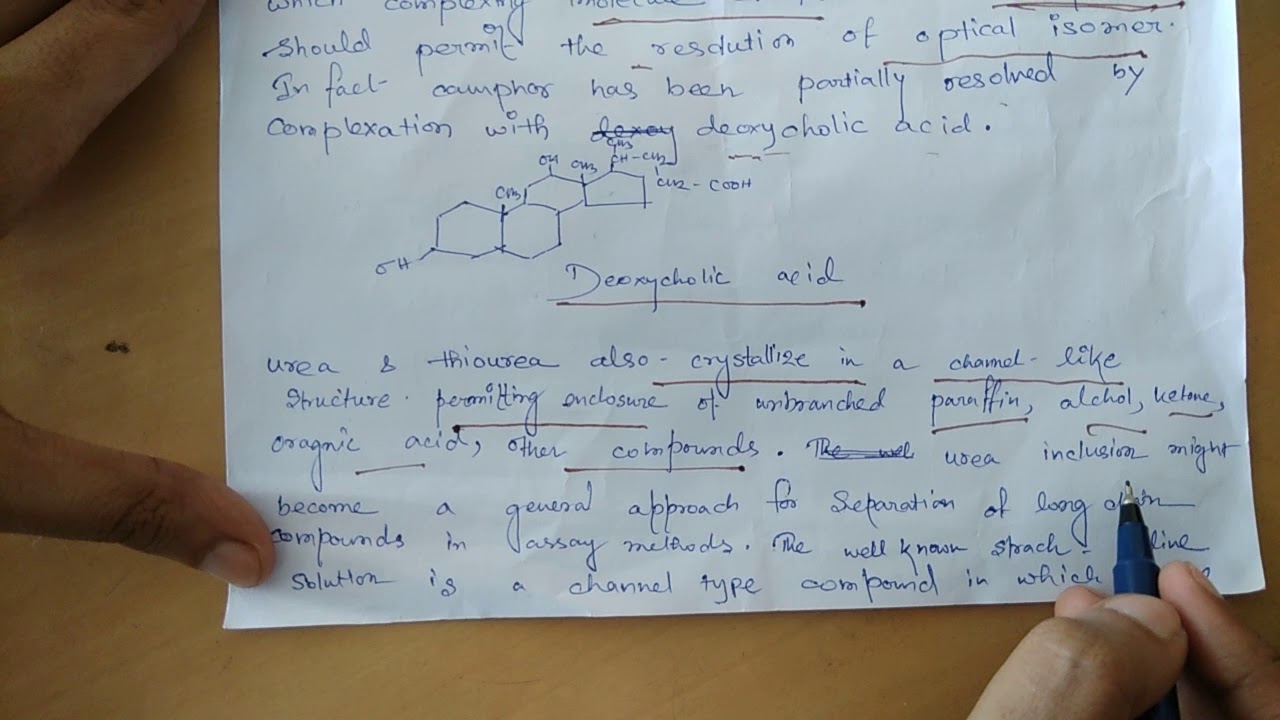 which complexing molecule
should permit the resolution of optical isomer.
In fact camphor has been partially resolved by
complexation with deoxy deoxycholic acid.
CH3
OH CH3 CH-CH2
CH3 CH2-COOH
OH
Deoxycholic acid
urea & thiourea also - crystallize in a channel-like
structure. permitting enclosure of unbranched paraffin, alchol, ketone,
oragnic acid, other compounds. The wel urea inclusion might
become a general approach for separation of long chain
compounds in assay methods. The well known strach-
solution is a channel type compound in which